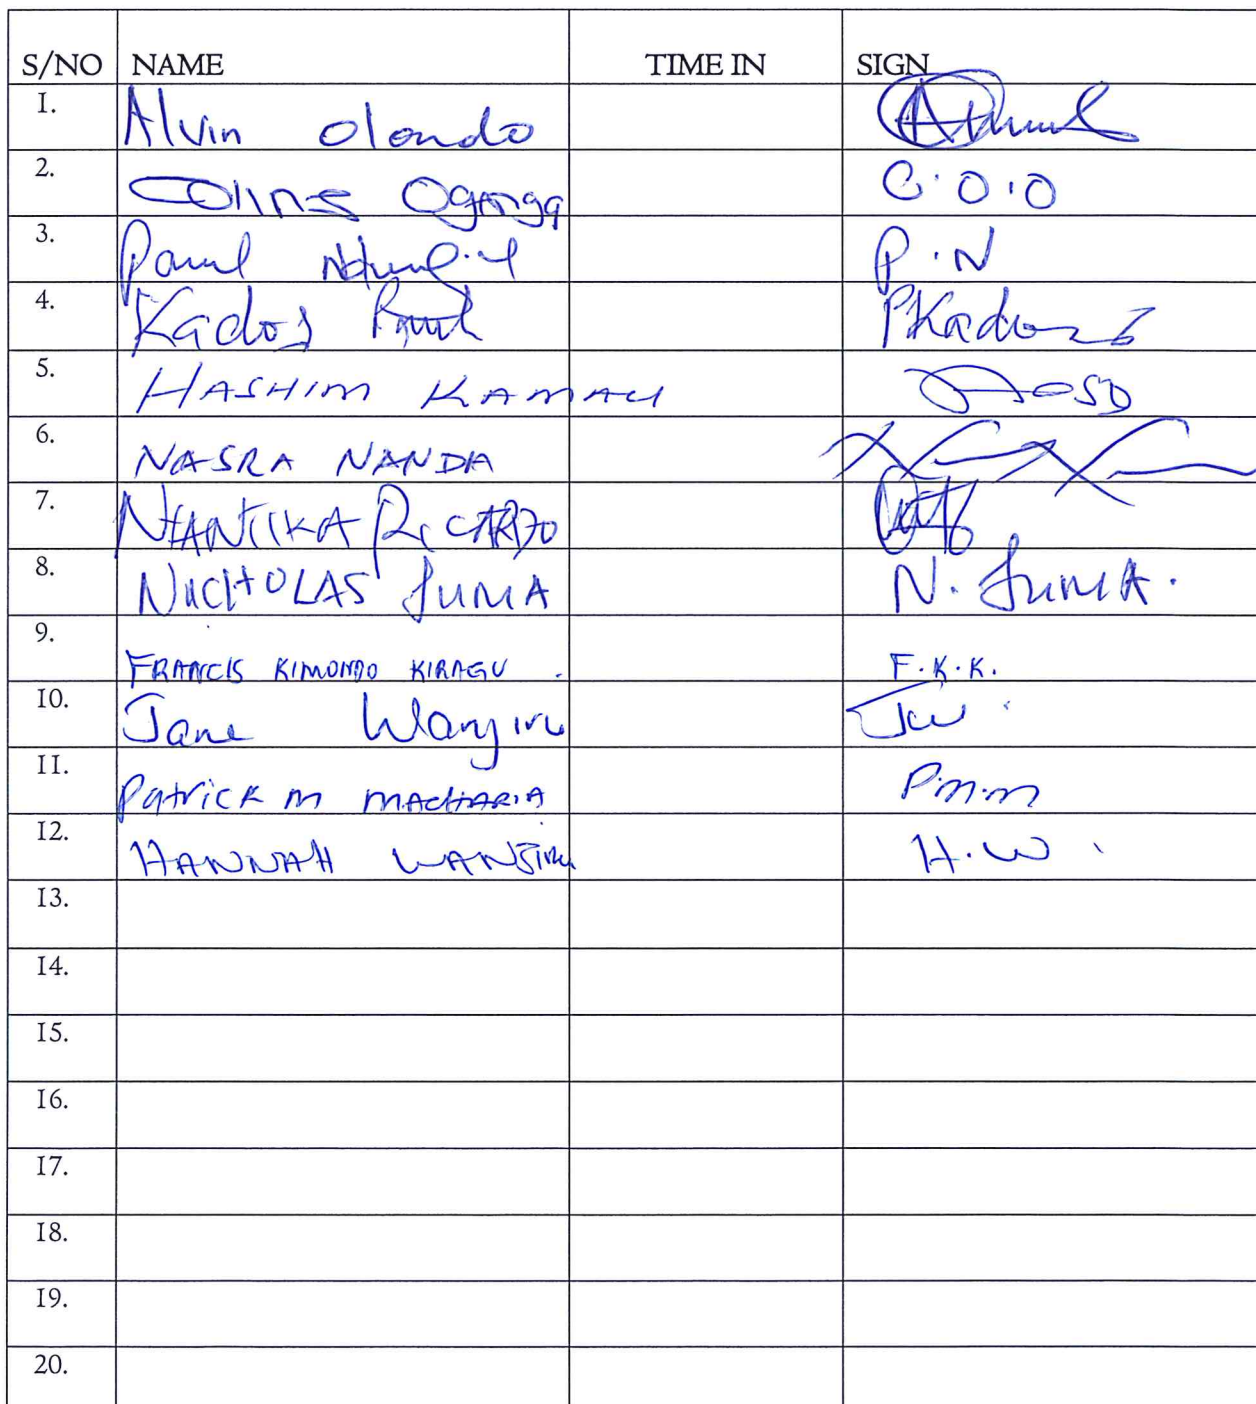 S/NO NAME TIME IN SIGN
1. Alvin Olondo
2. Collins Oganga C.O.O
3. Paul P.N
4. Kados Paul PKados
5. HASHIM KAMAU
6. NASRA NANDA
7. RICARDO
8. NICHOLAS JUMA N. JUMA.
9. FRANCIS KIMONDO KIRAGU. F.K.K.
10. Jane Wanjiru JW.
11. Patrick M MACHARIA P.M.M
12. HANNAH WANJIRU H.W.
13.
14.
15.
16.
17.
18.
19.
20.